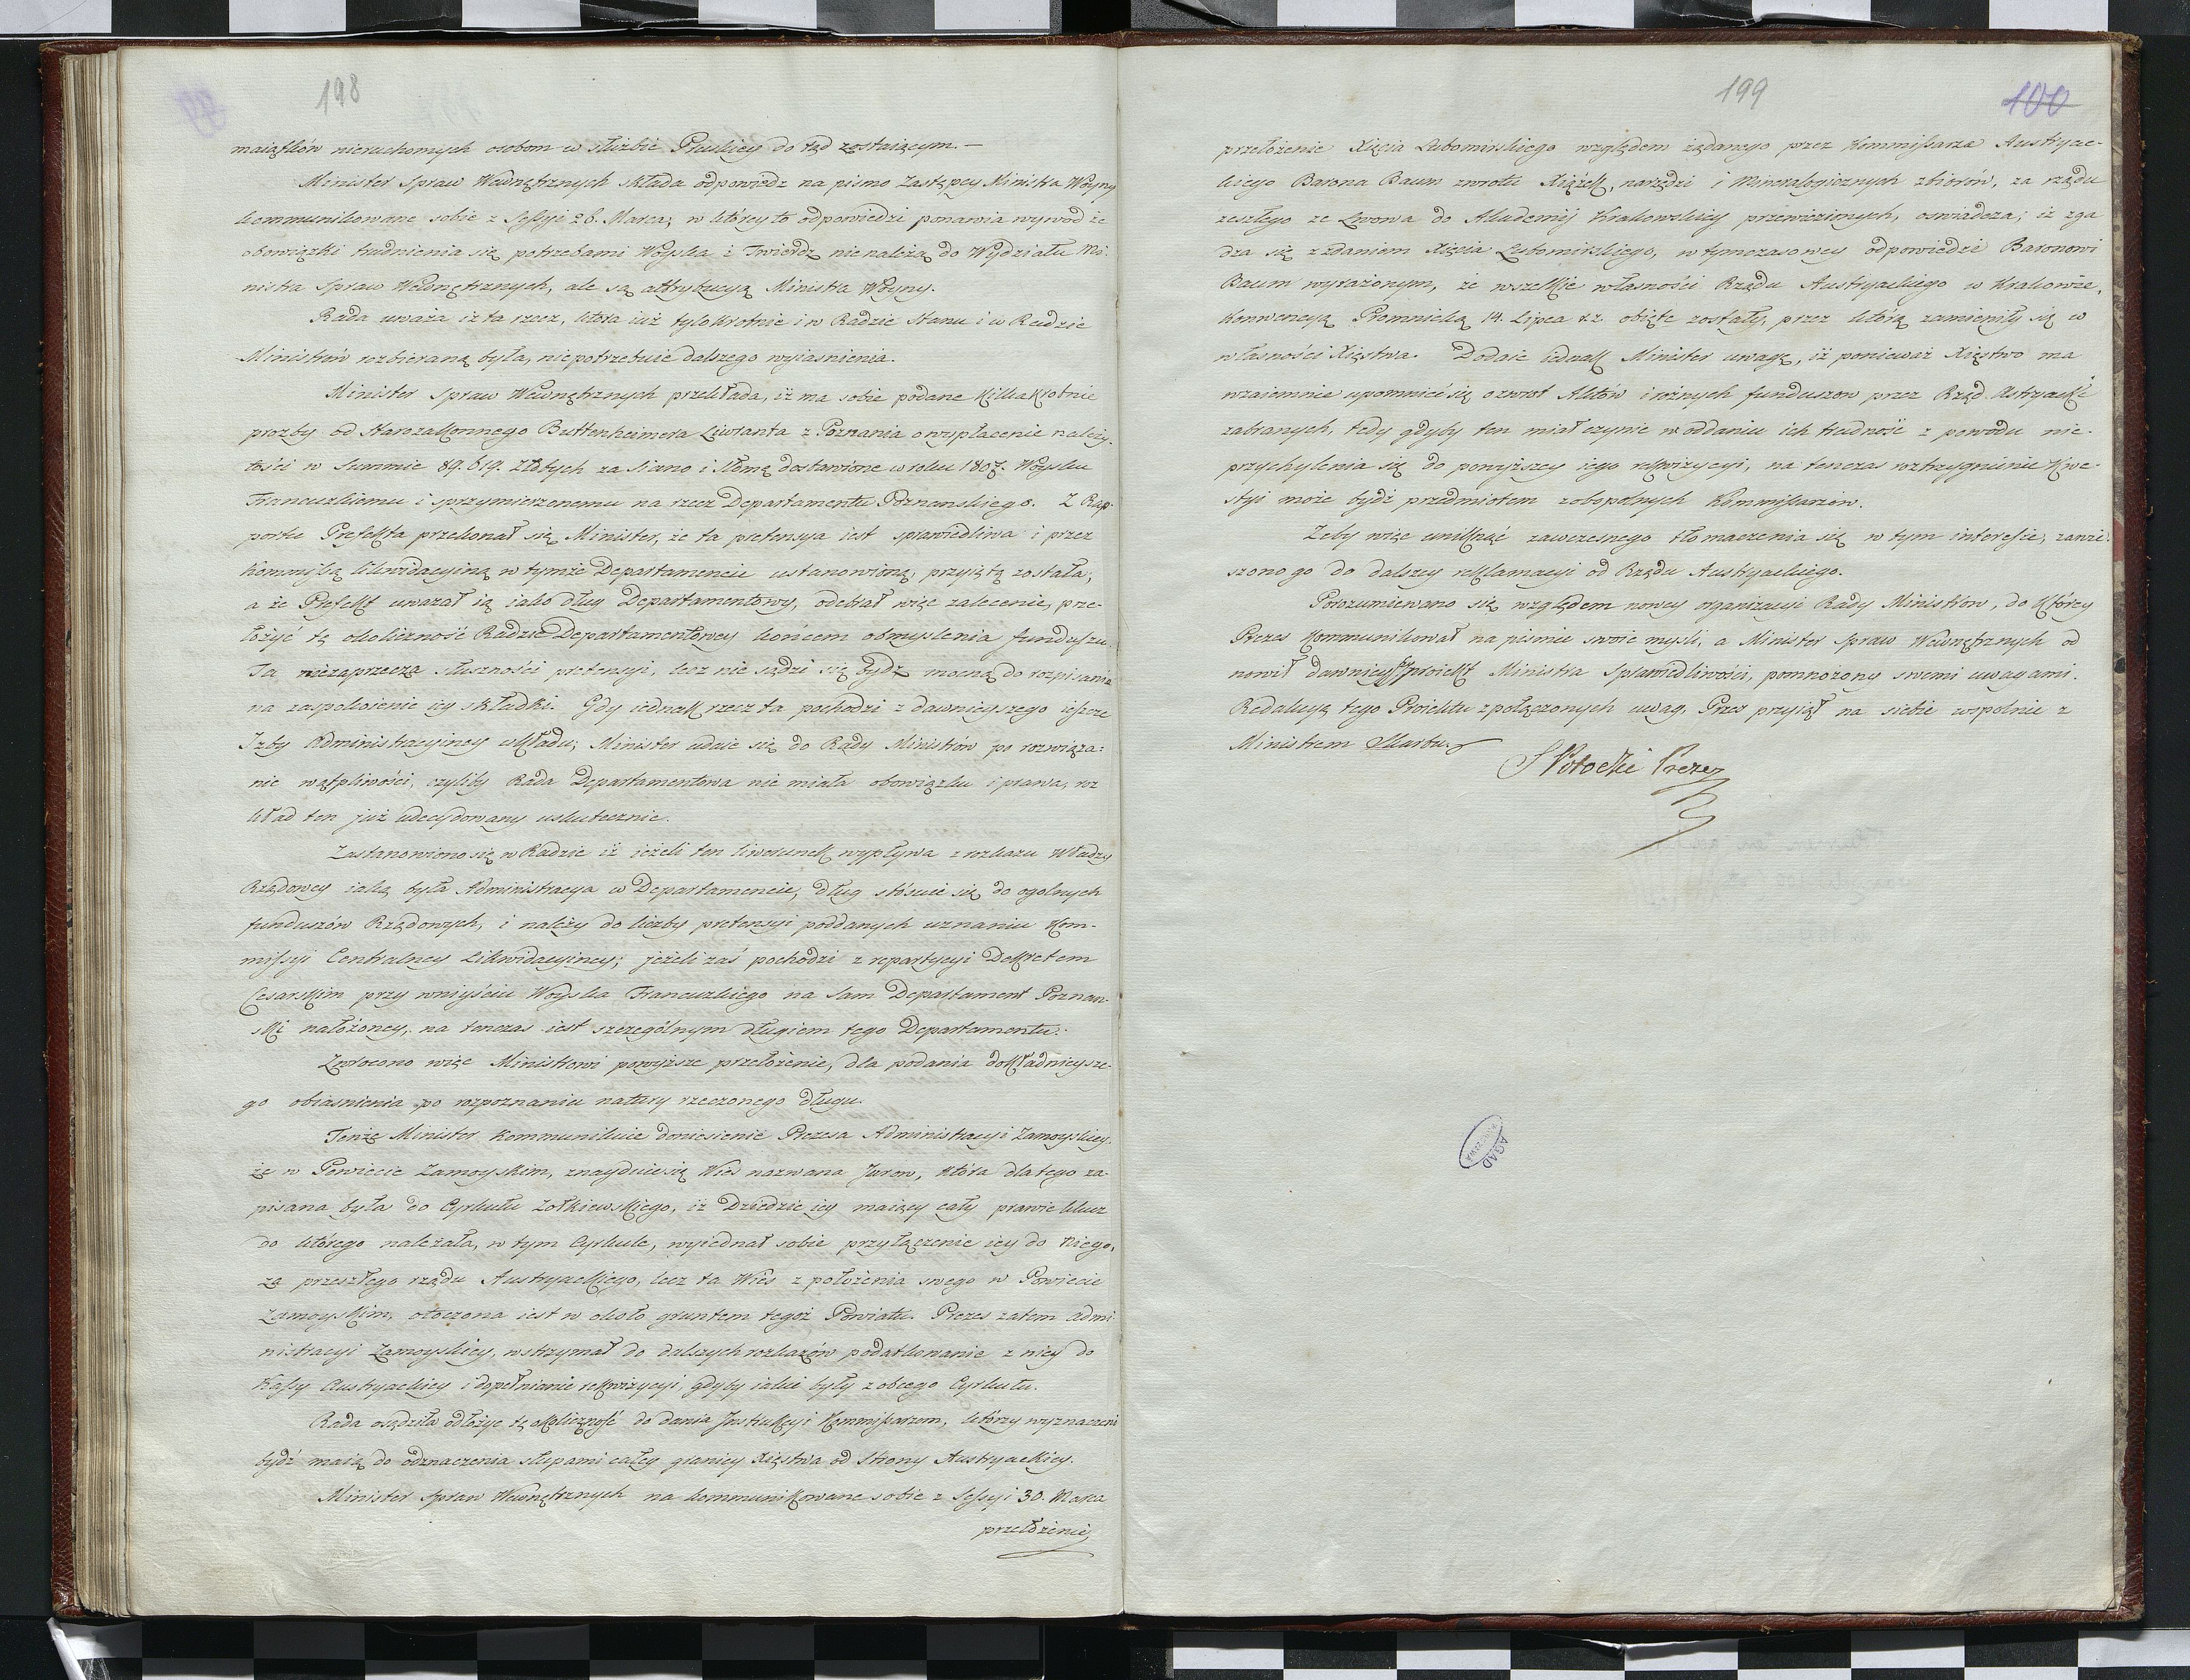 198
maiątków nieruchomych osobom w służbie Pruskiey do tąd zostaiącym. —
Minister Spraw Wewnętrznych składa odpowiedz na pismo Zastępcy Ministra Woyny
kommunikowane sobie z Sessyi 26. Marca; w którey to odpowiedzi ponawia wywod że
obowiązki trudnienia się potrzebami Woyska i Twierdz nie należą do Wydziału Mi-
nistra Spraw Wewnętrznych, ale są attrybucyą Ministra Woyny.
Rada uważa iż ta rzecz, która iuż tylokrotnie i w Radzie Stanu i w Radzie
Ministrów rozbieraną była, nie potrzebuie dalszego wyiasnienia.
Minister Spraw Wewnętrznych przekłada, iż ma sobie podane kilkakrotnie
prozby od Starozakonnego Buttenheimera Liwranta z Poznania o wypłacenie należy-
tości w Summie 89.619. Złotych za Siano i Słomę dostawione w roku 1807. Woysku
Francuzkiemu i sprzymierzonemu na rzecz Departamentu Poznanskiego. Z Rap-
portu Prefekta przekonał się Minister, że ta pretensya iest sprawiedliwa i przez
Kommissą likwidacyiną w tymże Departamencie ustanowioną, przyiętą została;
a że Prefekt uważał ią iako dług Departamentowy, odebrał więc zalecenie, prze-
łożyć tę okoliczność Radzie Departamentowey końcem obmyslenia funduszu.
Ta niezaprzecza słuszności pretensyi, lecz nie sądzi się bydź mocną do rozpisania
na zaspokoienie iey składki. Gdy iednak rzecz ta pochodzi z dawnieyszego ieszcze
Izby Administracyiney układu; Minister udaie się do Rady Ministrów po rozwiąza-
nie wątpliwości, czyliby Rada Departamentowa nie miała obowiązku i prawa, roz
kład ten już udecydowany uskutecznić.
Zastanowiono się w Radzie iż ieżeli ten liwerunek wypływa z rozkazu Władzy
Rządowey iaką była Administracya w Departamencie, dług stósuie się do ogolnych
funduszów Rządowych, i należy do liczby pretensyi poddanych uznaniu Kom-
missyi Centralney Likwidacyiney; jeżeli zaś pochodzi z repartycyi Dekretem
Cesarskim przy wniyściu Woyska Francuzkiego na sam Departament Poznan-
ski nałożoney, na tenczas iest szczególnym długiem tego Departamentu.
Zwrocono więc Ministrowi powyższe przełożenie, dla podania dokładnieysze-
go obiasnienia po rozpoznaniu natury rzeczonego długu.
Tenże Minister kommunikuie doniesienie Prezesa Administracyi Zamoyskiey,
że w Powiecie Zamoyskim, znayduie się Wies nazwana Jurow, która dlatego za-
pisana była do Cyrkułu Zołkiewskiego, iż Dziedzic iey maiący cały prawie klucz
do którego należała, w tym Cyrkule, wyiednał sobie przyłączenie iey do niego,
za przeszłego rządu Austryackiego, lecz ta Wies z położenia swego w Powiecie
Zamoyskim, otoczona iest w około gruntem tegoż Powiatu. Prezes zatem Admi-
nistracyi Zamoyskiey, wstrzymał do dalszych rozkazów podatkowanie z niey do
Kassy Austryackiey i dopełnianie rekwizycyi, gdyby iakie były z obcego Cyrkułu.
Rada osądziła odłożyć tę okoliczność do dania Instrukcyi Kommissarzom, którzy wyznaczeni
bydź maią do odznaczenia słupami całey granicy Xięstwa od Strony Austryackiey.
Minister Spraw Wewnętrznych na kommunikowane sobie z Sessyi 30. Marca
przełożenie
199
100
przełożenie Xięcia Lubomirskiego względem żądanego przez Kommissarza Austryac-
kiego Barona Baum zwrotu Xiążek, narzędzi i Mineralogicznych zbiorów, za rządu
zeszłego ze Lwowa do Akademij Krakowskiey przewiezionych, oswiadcza; iż zga
dza się z zdaniem Xięcia Lubomirskiego, w tymczasowey odpowiedzi Baronowi
Baum wyrażonym, że wszelkie własności Rządu Austryackiego w Krakowie,
Konwencyą Promnicką 14. Lipca r.z. obięte zostały, przez którą zamieniły się w
własności Xięstwa. Dodaie iednak Minister uwagę, iż ponieważ Xięstwo ma
wzaiemnie upomnieć się o zwrot Aktów i rożnych funduszow przez Rząd Astryacki
zabranych, tedy gdyby ten miał czynić w oddaniu ich trudność z powodu nie-
przychylenia się do powyższey iego rekwizycyi, na tenczas roztrzygnienie kwe-
styi może bydź przedmiotem zobopolnych Kommissarzów.
Żeby więc uniknąć zawczesnego tłomaczenia się w tym interessie, zawie-
szono go do dalszey reklamacyi od Rządu Austryackiego.
Porozumiewano się względem nowey organizacyi Rady Ministrów, do którey
Prezes kommunikował na pismie swoie mysli, a Minister Spraw Wewnętrznych od
nowił dawnieyszy proiekt Ministra Sprawiedliwości, pomnożony swemi uwagami.
Redakcyą tego Proiektu z połączonych uwag, Prezes przyiął na siebie wspolnie z
Ministrem Skarbu.
S Potocki Prezez
AGAD